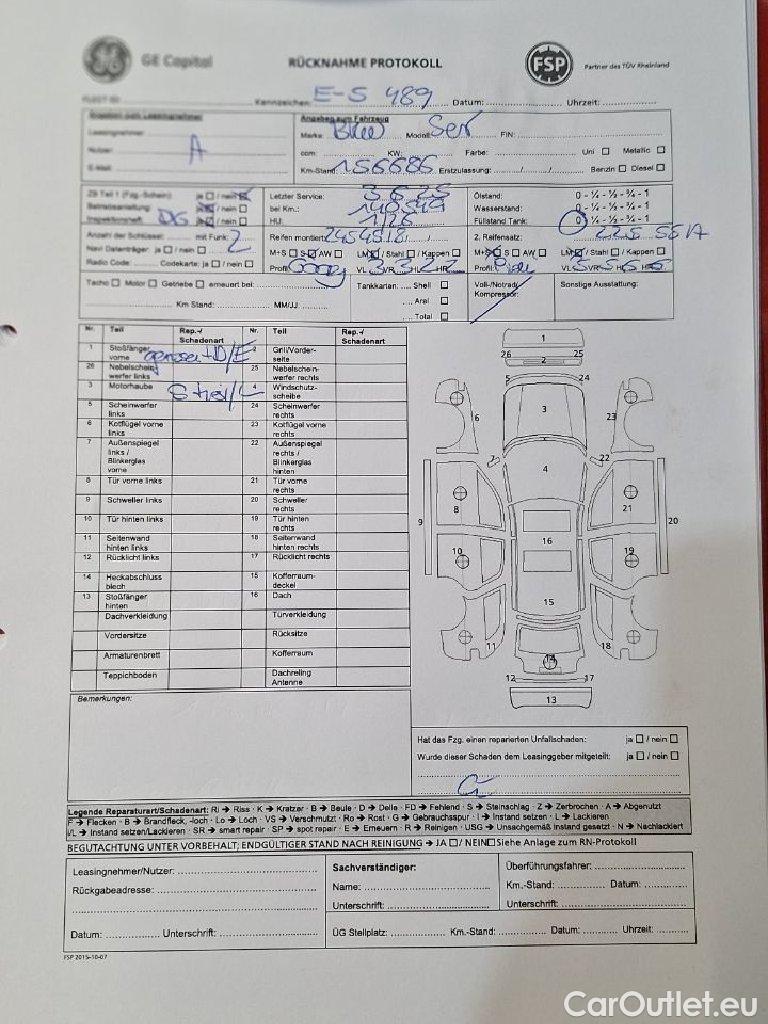 GE Capital RÜCKNAHME PROTOKOLL FSP Partner des TÜV Rheinland
Kennzeichen: E-S 489 Datum: Uhrzeit:
Angaben zum Fahrzeug
Leasingnehmer: Marke: Modell: FIN:
Nutzer: A ccm: KW: Farbe: Uni Metallic
E-Mail: Km-Stand: 156686 Erstzulassung: / / Benzin Diesel
ZB Teil 1 (Fzg.-Schein) ja / nein Letzter Service: 3.6.25 Ölstand: 0 - ¼ - ½ - ¾ - 1
Betriebsanleitung ja / nein bei Km.: Wasserstand: 0 - ¼ - ½ - ¾ - 1
Inspektionsheft ja / nein HU: 1/26 Füllstand Tank: 0 - ¼ - ½ - ¾ - 1
Anzahl der Schlüssel: mit Funk: 2 Reifen montiert: 2454518 / 2. Reifensatz: 225 55 /
Navi Datenträger: ja / nein M+S S AW LM / Stahl / Kappen M+S S AW LM / Stahl / Kappen
Radio Code: Codekarte: ja / nein Profil: VL VR HL HR Profil: VL 5 VR 5 HL 5 HR 5
Tacho Motor Getriebe erneuert bei: Tankkarten: Shell Voll-/Notrad/ Sonstige Ausstattung:
Aral Kompressor:
Km Stand: MM/JJ: Total
Nr. Teil Rep.-/ Schadenart Nr. Teil Rep.-/ Schadenart
1 Stoßfänger vorne 2 Grill/Vorderseite
26 Nebelscheinwerfer links 25 Nebelscheinwerfer rechts
3 Motorhaube 4 Windschutzscheibe
5 Scheinwerfer links 24 Scheinwerfer rechts
6 Kotflügel vorne links 23 Kotflügel vorne rechts
7 Außenspiegel links / Blinkerglas vorne 22 Außenspiegel rechts / Blinkerglas hinten
8 Tür vorne links 21 Tür vorne rechts
9 Schweller links 20 Schweller rechts
10 Tür hinten links 19 Tür hinten rechts
11 Seitenwand hinten links 18 Seitenwand hinten rechts
12 Rücklicht links 17 Rücklicht rechts
14 Heckabschlussblech 15 Kofferraumdeckel
13 Stoßfänger hinten 16 Dach
Dachverkleidung Türverkleidung
Vordersitze Rücksitze
Armaturenbrett Kofferraum
Teppichboden Dachreling Antenne
1
26 2 25
5 24
6 3 23
7 4 22
9 8 21 20
10 16 19
15
11 14 18
12 17
13
Bemerkungen:
Hat das Fzg. einen reparierten Unfallschaden: ja / nein
Wurde dieser Schaden dem Leasinggeber mitgeteilt: ja / nein
Legende Reparaturart/Schadenart: RI → Riss · K → Kratzer · B → Beule · D → Delle · FD → Fehlend · S → Steinschlag · Z → Zerbrochen · A → Abgenutzt
F → Flecken · B → Brandfleck, -loch · Lo → Loch · VS → Verschmutzt · Ro → Rost · G → Gebrauchsspur · I → Instand setzen · L → Lackieren
I/L → Instand setzen/Lackieren · SR → smart repair · SP → spot repair · E → Erneuern · R → Reinigen · USG → Unsachgemäß instand gesetzt · N → Nachlackiert
BEGUTACHTUNG UNTER VORBEHALT; ENDGÜLTIGER STAND NACH REINIGUNG → JA / NEIN Siehe Anlage zum RN-Protokoll
Leasingnehmer/Nutzer: Sachverständiger: Überführungsfahrer:
Rückgabeadresse: Name: Km.-Stand: Datum:
Unterschrift: Unterschrift:
Datum: Unterschrift: ÜG Stellplatz: Km.-Stand: Datum: Uhrzeit:
FSP 2015-10-07
CarOutlet.eu